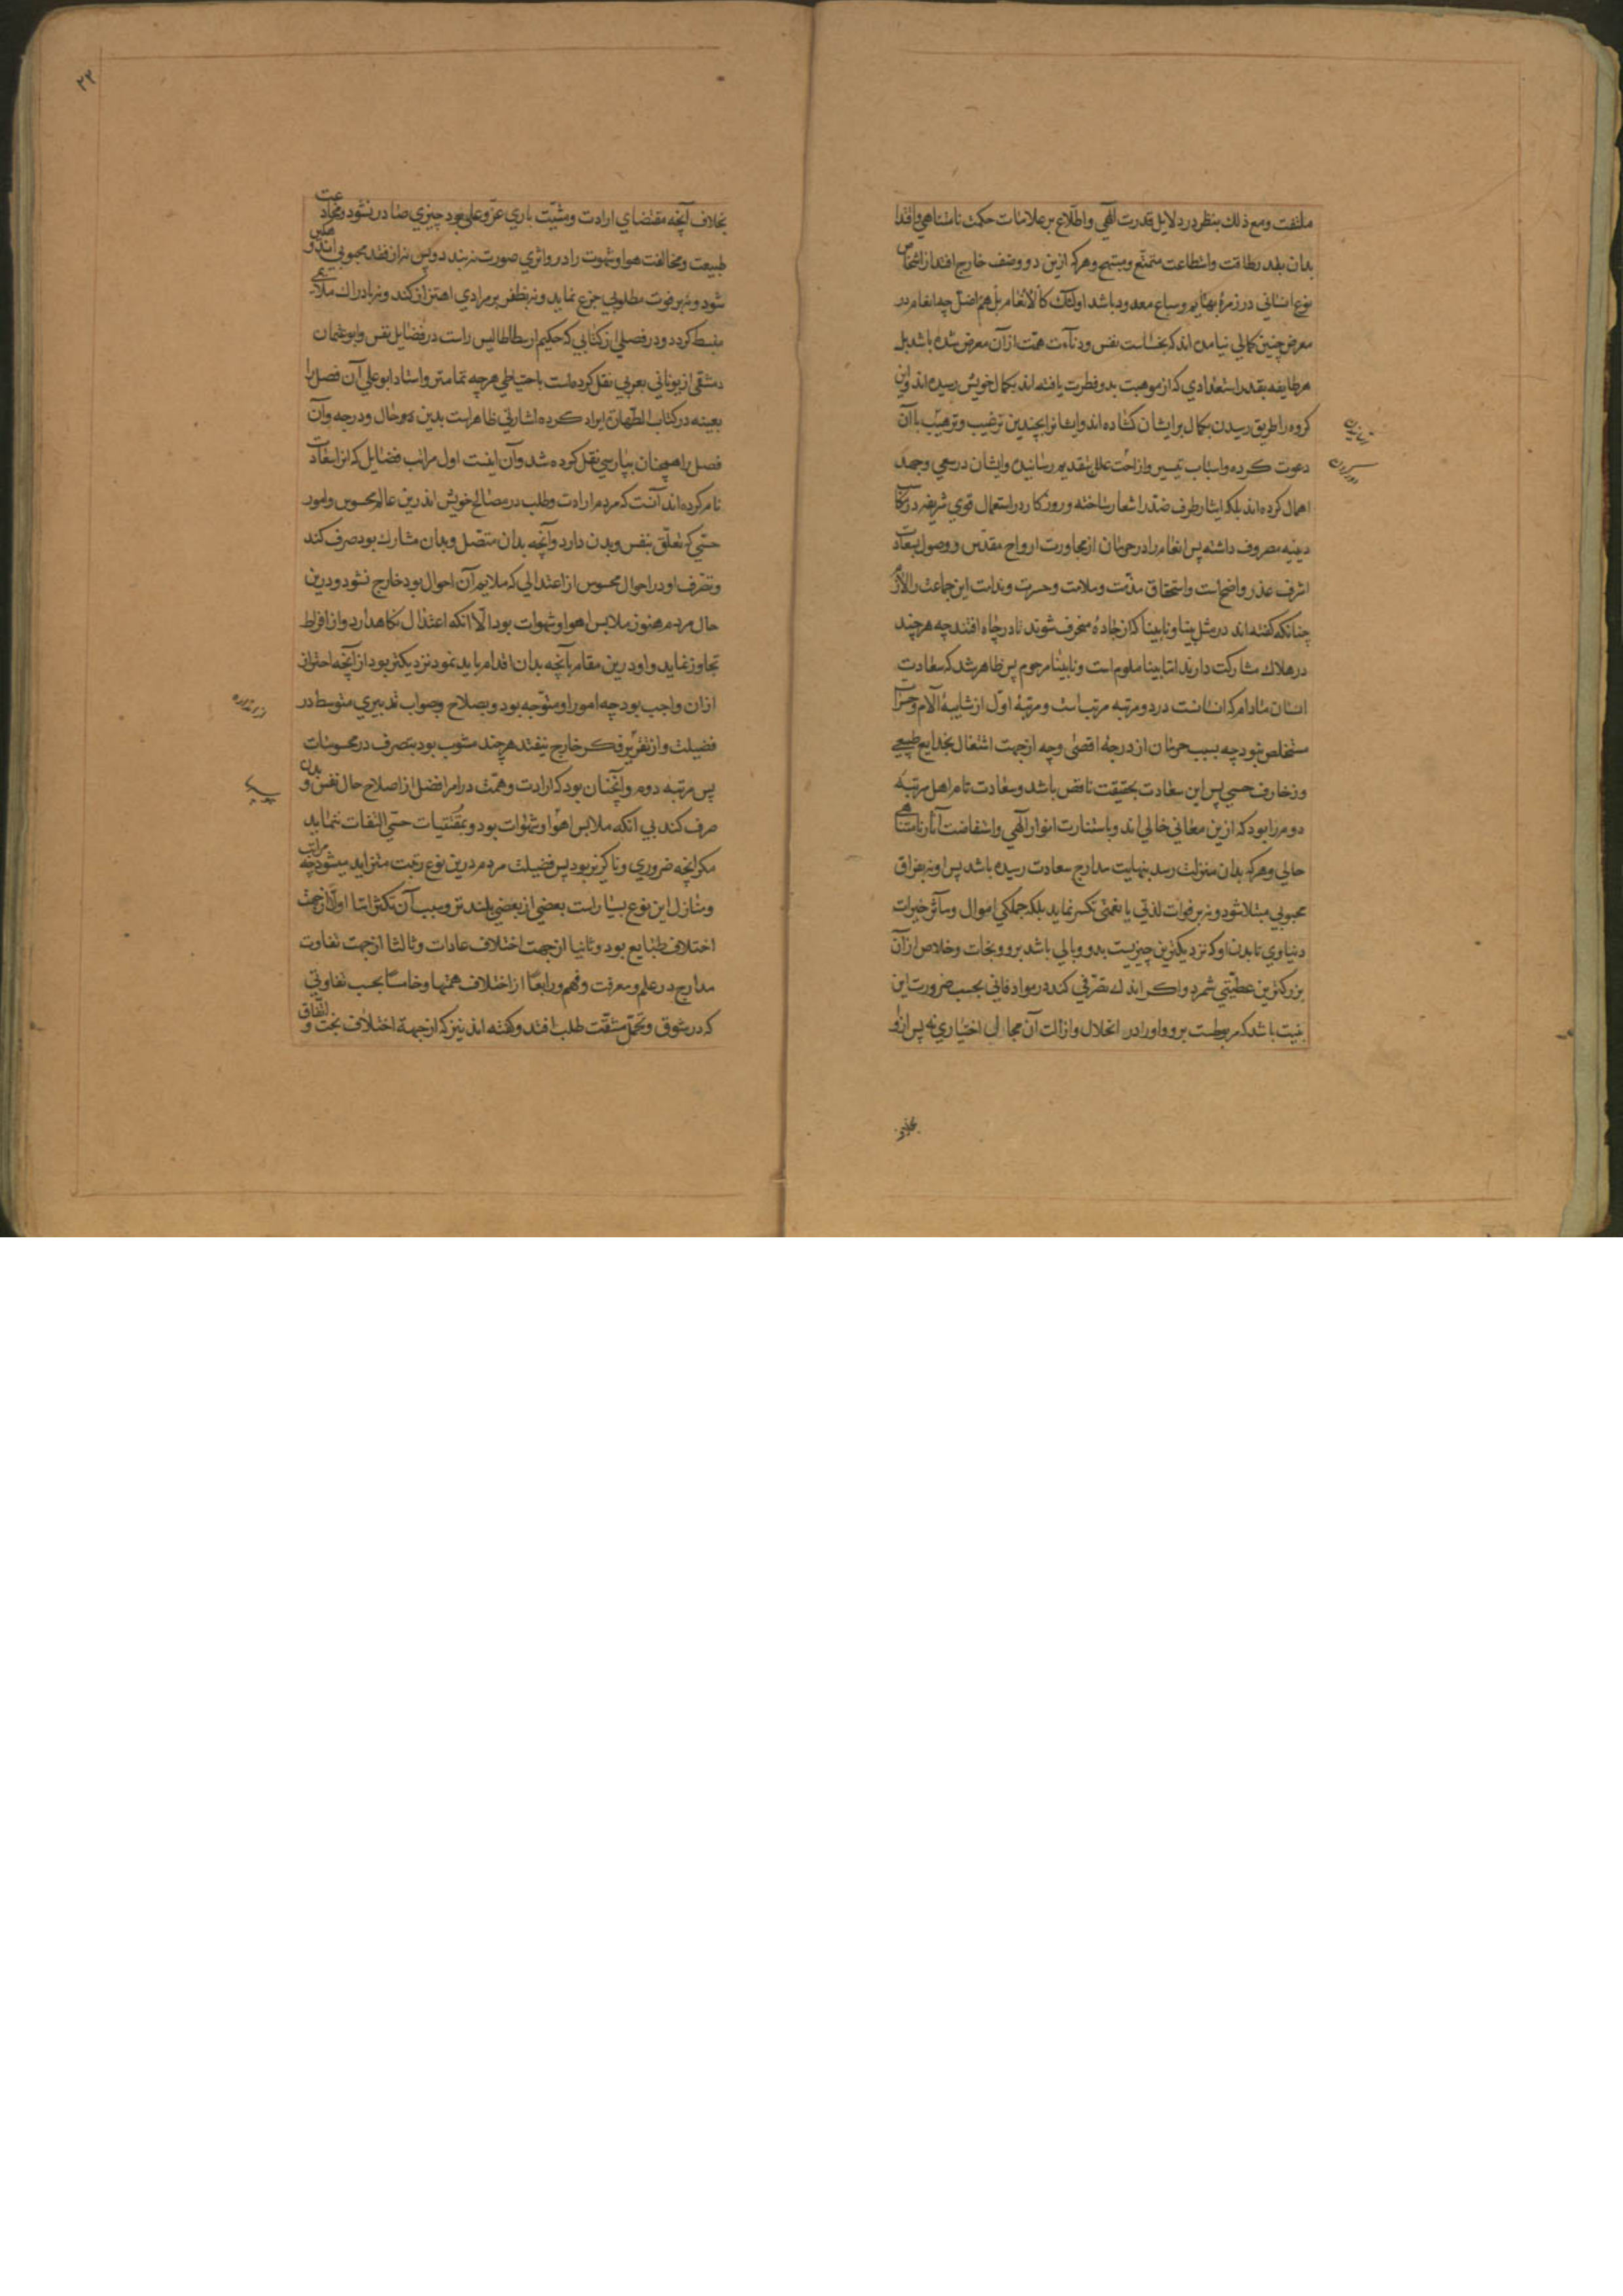 ملتفت ومع ذلك بنظر در دلایل قدرت الهی واطلاع بر علامات حکمت نامتناهی واقتدا
بدان بقدر طاقت واستطاعت متمتع ومبتهج وهرکه ازین دو وصف خارج افتد از اشخاص
نوع انسانی در زمرهٔ بهایم وسباع معدود باشد اولئك کالانعام بل هم اضل چه انعام در
معرض چنین کمالی نیامده اند که بخساست نفس ودناءت همت از آن معرض شده باشد بل
هر طایفه بقدر استعدادی که از موهبت بدو فطرت یافته اند بکمال خویش رسیده اند واین
کروه را طریق رسیدن بکمال بر ایشان کشاده اند وایشانرا بچندین ترغیب وترهیب با آن
دعوت کرده واسباب تیسیر وازاحت علل بتقدیم رسانیده وایشان در سعی وجهد
اهمال کرده اند بلکه ایثار طرف ضد را شعار ساخته وروزکار در استعمال قوی شریفه در مکاسب
دنیه مصروف داشته پس انعام را در حرمان از مجاورت ارواح مقدس ووصول بسعادت
اشرف عذر واضح است واستحقاق مذمت وملامت وحسرت وندامت این جماعت را لازم
چنانکه کفته اند در مثل بینا ونابینا که از جاده منحرف شوند تا در چاه افتند چه هرچند
در هلاك مشارکت دارند اما بینا ملوم است ونابینا مرحوم پس ظاهر شد که سعادت
انسان مادام که انسانست در دو مرتبه مرتب است ومرتبهٔ اول از شایبهٔ آلام وحسرات
مستخلص نبود چه بسبب حرمان از درجهٔ اقصی وچه از جهت اشتغال بخدایع طبیعی
وزخارف حسی پس این سعادت بحقیقت ناقص باشد وسعادت تام اهل مرتبه
دوم را بود که ازین معانی خالی اند وباستنارت انوار الهی واستفاضت آثار نامتناهی
حالی وهرکه بدان منزلت رسد بنهایت مدارج سعادت رسیده باشد پس او نه بفراق
محبوبی مبتلا شود ونه بر فوات لذتی یا نعمتی تحسر نماید بلکه جملکی اموال ومآثر خیرات
دنیاوی تا بدن او که نزدیکترین چیزیست بدو وبالی باشد برو ونجات وخلاص از آن
بزرکترین عطیتی شمرد واکر اندك تصرفی کند در مواد فانی بحسب ضرورت این
بنیت باشد که مربوطست برو واورا در انحلال وازالت آن مجالی اختیاری نه پس ازو
بخلاف
۲۲
بخلاف آنچه مقتضای ارادت ومشیت باری عز وعلی بود چیزی صادر نشود ومخادعت
طبیعت ومخالفت هوا وشهوت را درو اثری صورت نبندد وپس نه از فقد محبوبی اندوهکین
شود ونه بر فوت مطلوبی جزع نماید ونه بظفر بر مرادی اهتزاز کند ونه بادراك ملایمی
منبسط کردد ودر فصلی از کتابی که حکیم ارسطاطالیس راست در فضایل نفس وابو عثمان
دمشقی از یونانی بعربی نقل کرده است باحتیاطی هرچه تمامتر واستاد ابو علی آن فصل را
بعینه در کتاب الطهارة ایراد کرده اشارتی ظاهر است بدین دو حال ودرجه وآن
فصل را همچنان بپارسی نقل کرده شد وآن اینست اول مراتب فضایل که انرا سعادت
نام کرده اند آنست که مردم ارادت وطلب در مصالح خویش اندرین عالم محسوس وامور
حسی که تعلق بنفس وبدن دارد وآنچه بدان متصل وبدان مشارك بود صرف کند
وتصرف او در احوال محسوس از اعتدالی که ملایم آن احوال بود خارج نشود ودرین
حال مردم هنوز ملابس اهوا وشهوات بود الا آنکه اعتدال نکاه دارد واز افراط
تجاوز نماید واو درین مقام بآنچه بدان اقدام باید نمود نزدیکتر بود از آنچه احتراز
ازان واجب بود چه امور او متوجه بود وبصلاح وصواب تدبیری متوسط در
فضیلت واز تقریر فکر خارج نیفتد هرچند مشوب بود بتصرف در محسوسات
پس مرتبه دوم وآنچنان بود که ارادت وهمت در امر افضل از اصلاح حال نفس وبدن
صرف کند بی آنکه ملابس اهوا وشهوات بود وبمقتنیات حسی التفات ننماید
مکر انچه ضروری وناکزیر بود پس فضیلت مردم درین نوع رتبت متزاید میشود چه مراتب
ومنازل این نوع بسیار است بعضی از بعضی بلندتر وسبب آن تکثر اما اولا از جهت
اختلاف طبایع بود وثانیا از جهت اختلاف عادات وثالثا از جهت تفاوت
مدارج در علم ومعرفت وفهم ورابعا از اختلاف همتها وخامسا بحسب تفاوتی
که در شوق وتحمل مشقت طلب افتد وکفته اند نیز که از جهة اختلاف بخت واتفاق